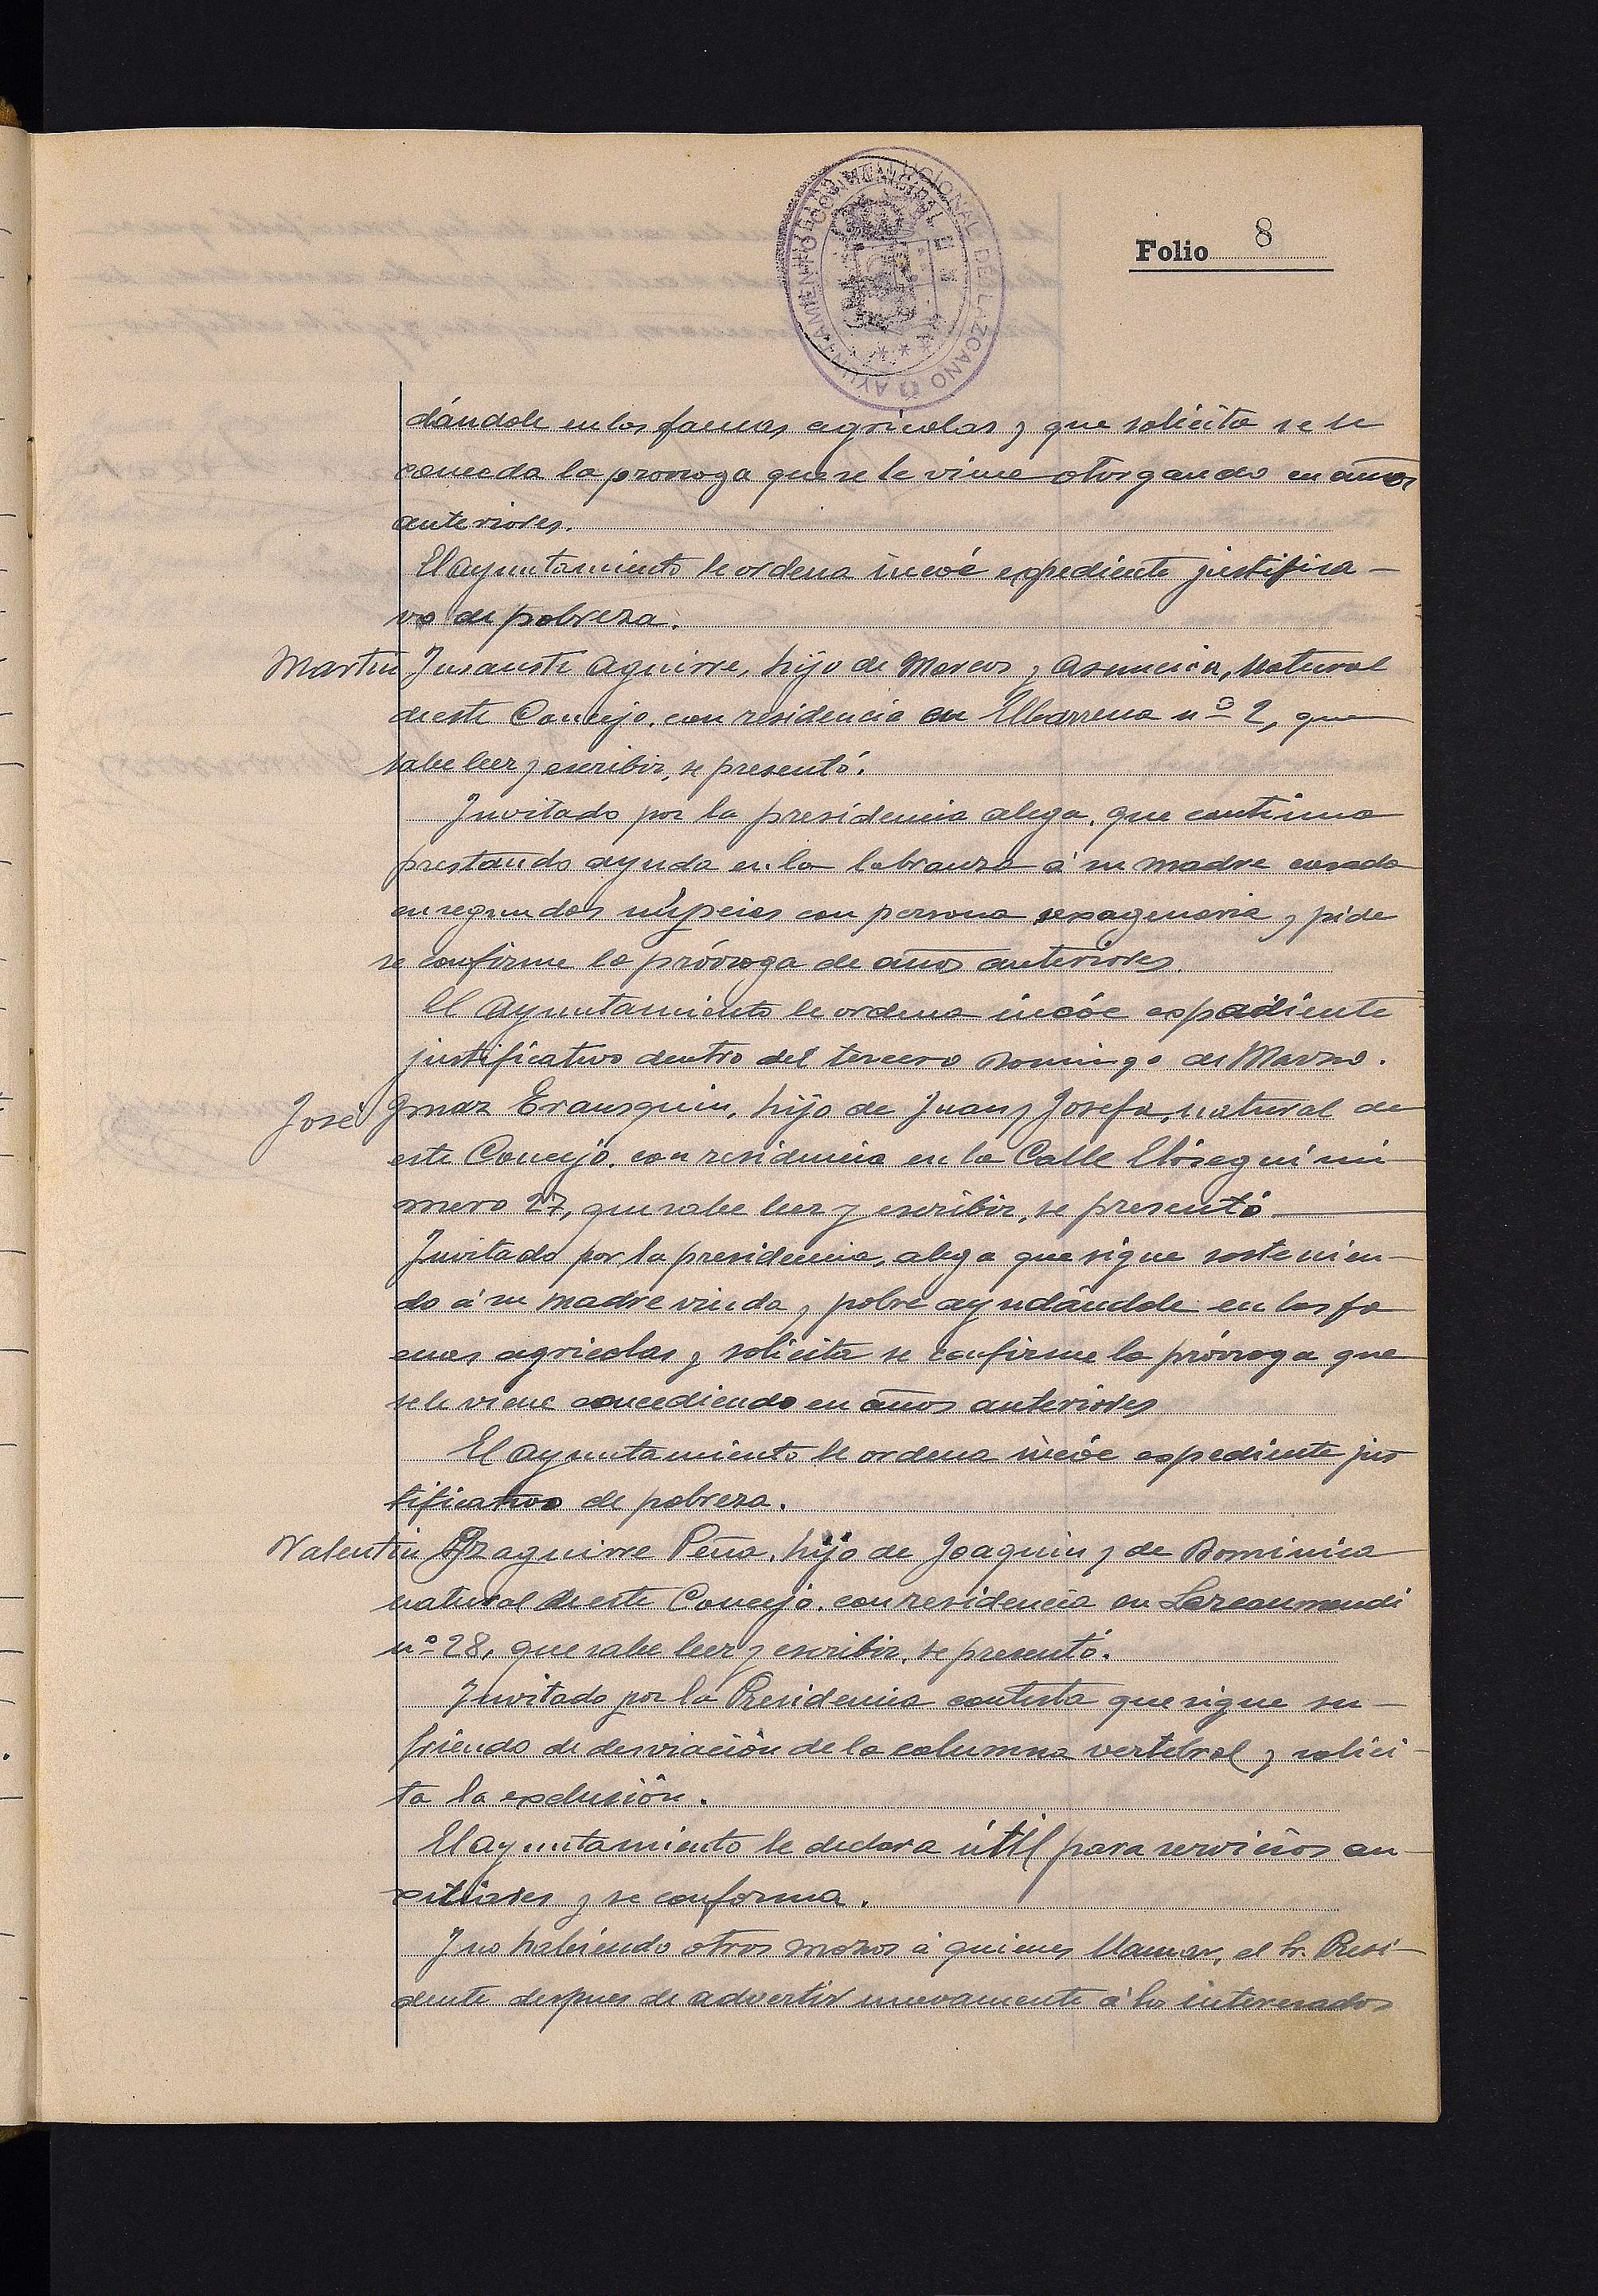 AYUNTAMIENTO CONSTITUCIONAL DE LAZCANO
Folio 8
dándole en las faenas agrícolas y que solicita se le
conceda la prorroga que se le viene otorgando en años
anteriores.
El Ayuntamiento le ordena incoé expediente justifica-
vo de pobreza.
Martin Insausti Aguirre, hijo de Marcos y Asuncion, Natural
de este Concejo, con residencia en Elbarrena nº 2, que
sabe leer y escribir, se presentó.
Invitado por la presidencia alega, que continua
prestando ayuda en la labranza á su madre casada
en segundas núpcias con persona sexagenaria y pide
se confirme la prórroga de años anteriores.
El Ayuntamiento le ordena incóe expediente
justificativo dentro del tercero Domingo de Marzo.
José Imaz Erausquin, hijo de Juan y Josefa, natural de
este Concejo, con residencia en la Calle Elósegui nú
mero 27, que sabe leer y escribir, se presentó
Invitado por la presidencia, alega que sigue sostenien-
do á su madre viuda y pobre ayudándole en las fa
enas agricolas y solicita se confirme la prórroga que
se le viene concediendo en años anteriores
El Ayuntamiento le ordena incóe expediente jus
tificativo de pobreza.
Valentin Izaguirre Peña, hijo de Joaquin y de Dominica
natural de este Concejo, con residencia en Lazcaomendi
nº 28, que sabe leer y escribir, se presentó.
Invitado por la Presidencia contesta que sigue su-
friendo de desviación de la columna vertebral y solici-
ta la exclusión.
El Ayuntamiento le declara útil para servicios au-
xiliares y se conforma.
Y no habiendo otros mozos á quienes llamar, el Sr. Presi-
dente despues de advertir nuevamente á los interesados